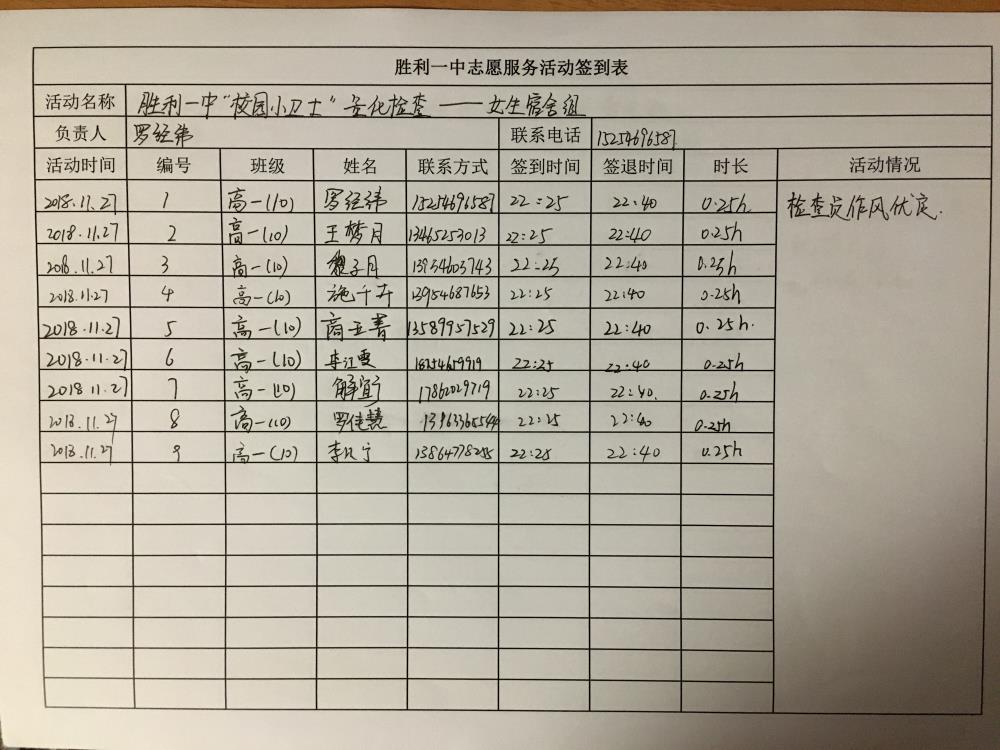 胜利一中志愿服务活动签到表
活动名称 胜利一中“校园小卫士”量化检查——女生宿舍组
负责人 罗经纬 联系电话 15254696587
活动时间 编号 班级 姓名 联系方式 签到时间 签退时间 时长 活动情况
2018.11.27 1 高一(10) 罗经纬 15254696587 22:25 22:40 0.25h 检查员作风优良.
2018.11.27 2 高一(10) 王梦月 13465253013 22:25 22:40 0.25h
2018.11.27 3 高一(10) 子月 13954605743 22:25 22:40 0.25h
2018.11.27 4 高一(10) 施千卉 13954687653 22:25 22:40 0.25h
2018.11.27 5 高一(10) 商玉菁 13589957529 22:25 22:40 0.25h.
2018.11.27 6 高一(10) 李江雯 18754659919 22:25 22:40 0.25h
2018.11.27 7 高一(10) 解宜 17862029719 22:25 22:40. 0.25h
2018.11.27 8 高一(10) 罗佳慧 22:25 22:40 0.25h
2018.11.27 9 高一(10) 李 宁 22:25 22:40 0.25h